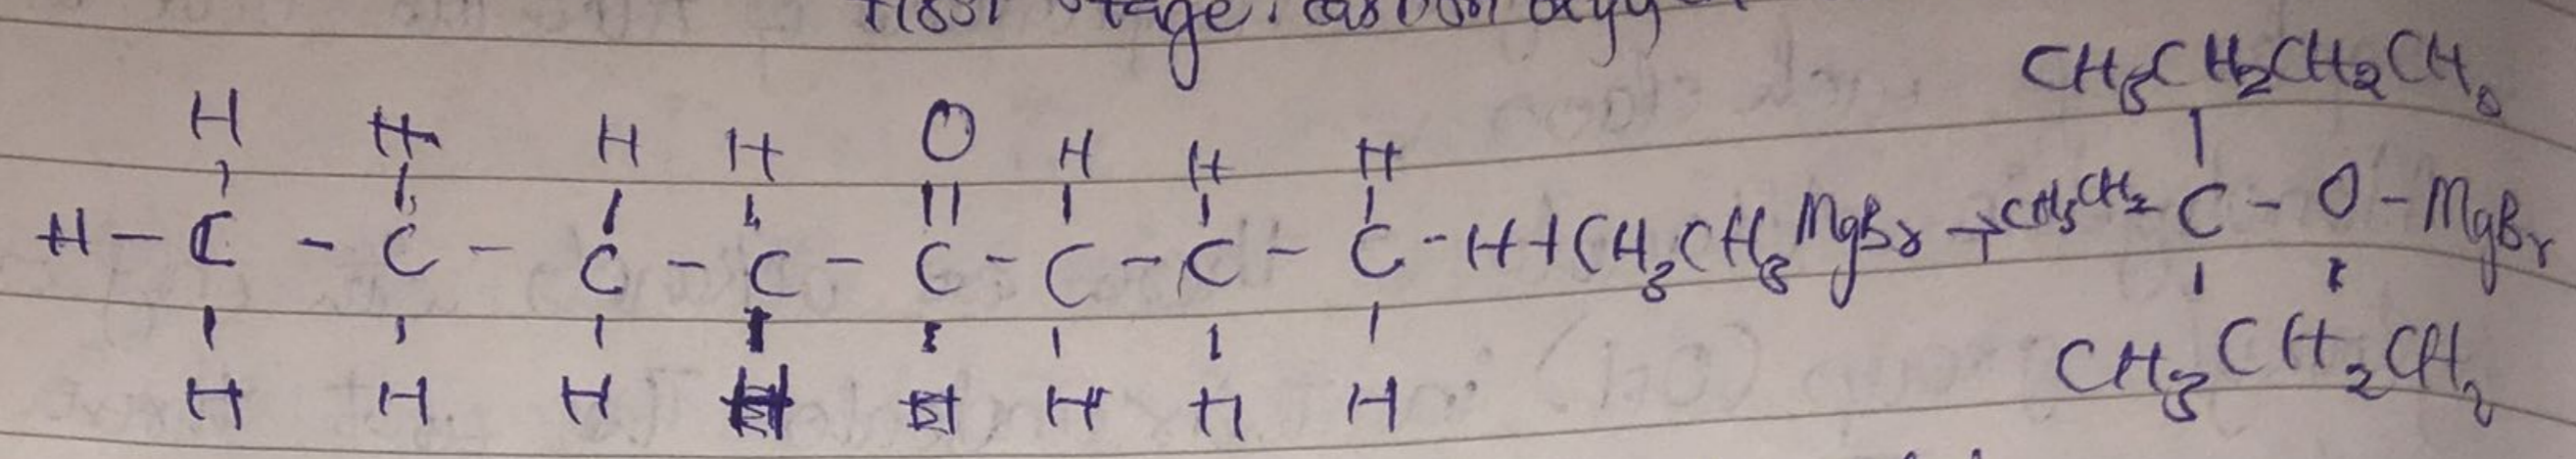 First stage: carbon oxy
CH3CH2CH2CH2
H H H H O H H H
H-C-C-C-C-C-C-C-C-H+CH3CH3MgBr→CH3CH2-C-O-MgBr
H H H H H H H
CH3CH2CH2